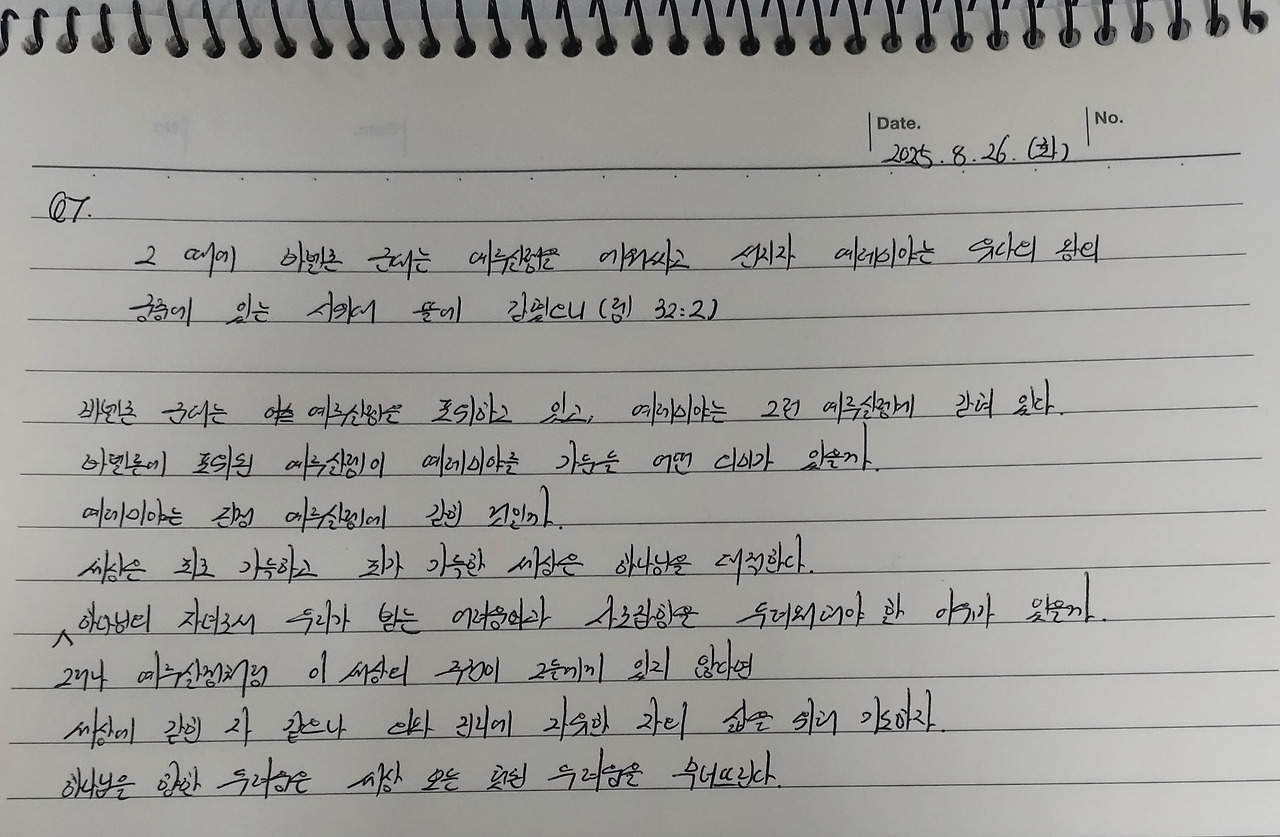 Date.
No.
2025. 8. 26. (화)
QT.
2 때에 바벨론 군대는 예루살렘을 에워싸고 선지자 예레미야는 유다의 왕의
궁중에 있는 시위대 뜰에 갇혔으니 (렘 32:2)
바벨론 군대는 예루살렘을 포위하고 있고, 예레미야는 그런 예루살렘에 갇혀 있다.
바벨론에 포위된 예루살렘이 예레미야를 가둔들 어떤 의미가 있을까.
예레미야는 진정 예루살렘에 갇힌 것인가.
세상은 죄로 가득하고 죄가 가득한 세상은 하나님을 대적한다.
하나님의 자녀로서 우리가 받는 어려움과 사로잡힘은 두려워해야 할 이유가 있을까.
그러나 예루살렘처럼 이 세상의 주권이 그들에게 있지 않다면
세상에 갇힌 자 같으나 진리에 자유한 자의 삶을 위해 기도하자.
하나님을 향한 두려움은 세상 모든 헛된 두려움을 무너뜨린다.